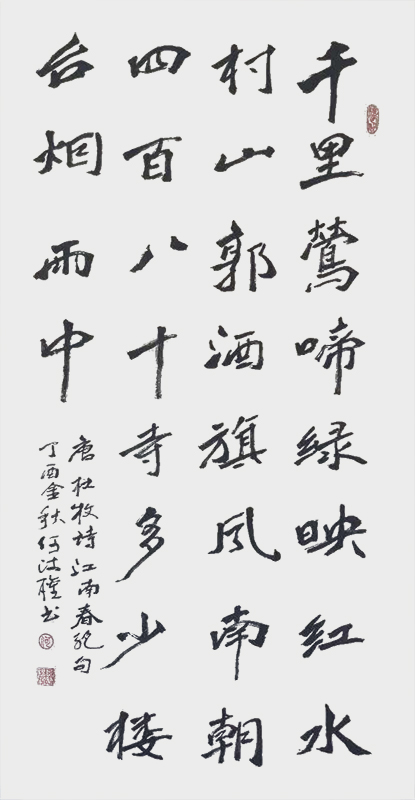 千里鶯啼绿映红水
村山郭酒旗风南朝
四百八十寺多少楼
台烟雨中
唐杜牧诗江南春绝句
丁酉金秋何书